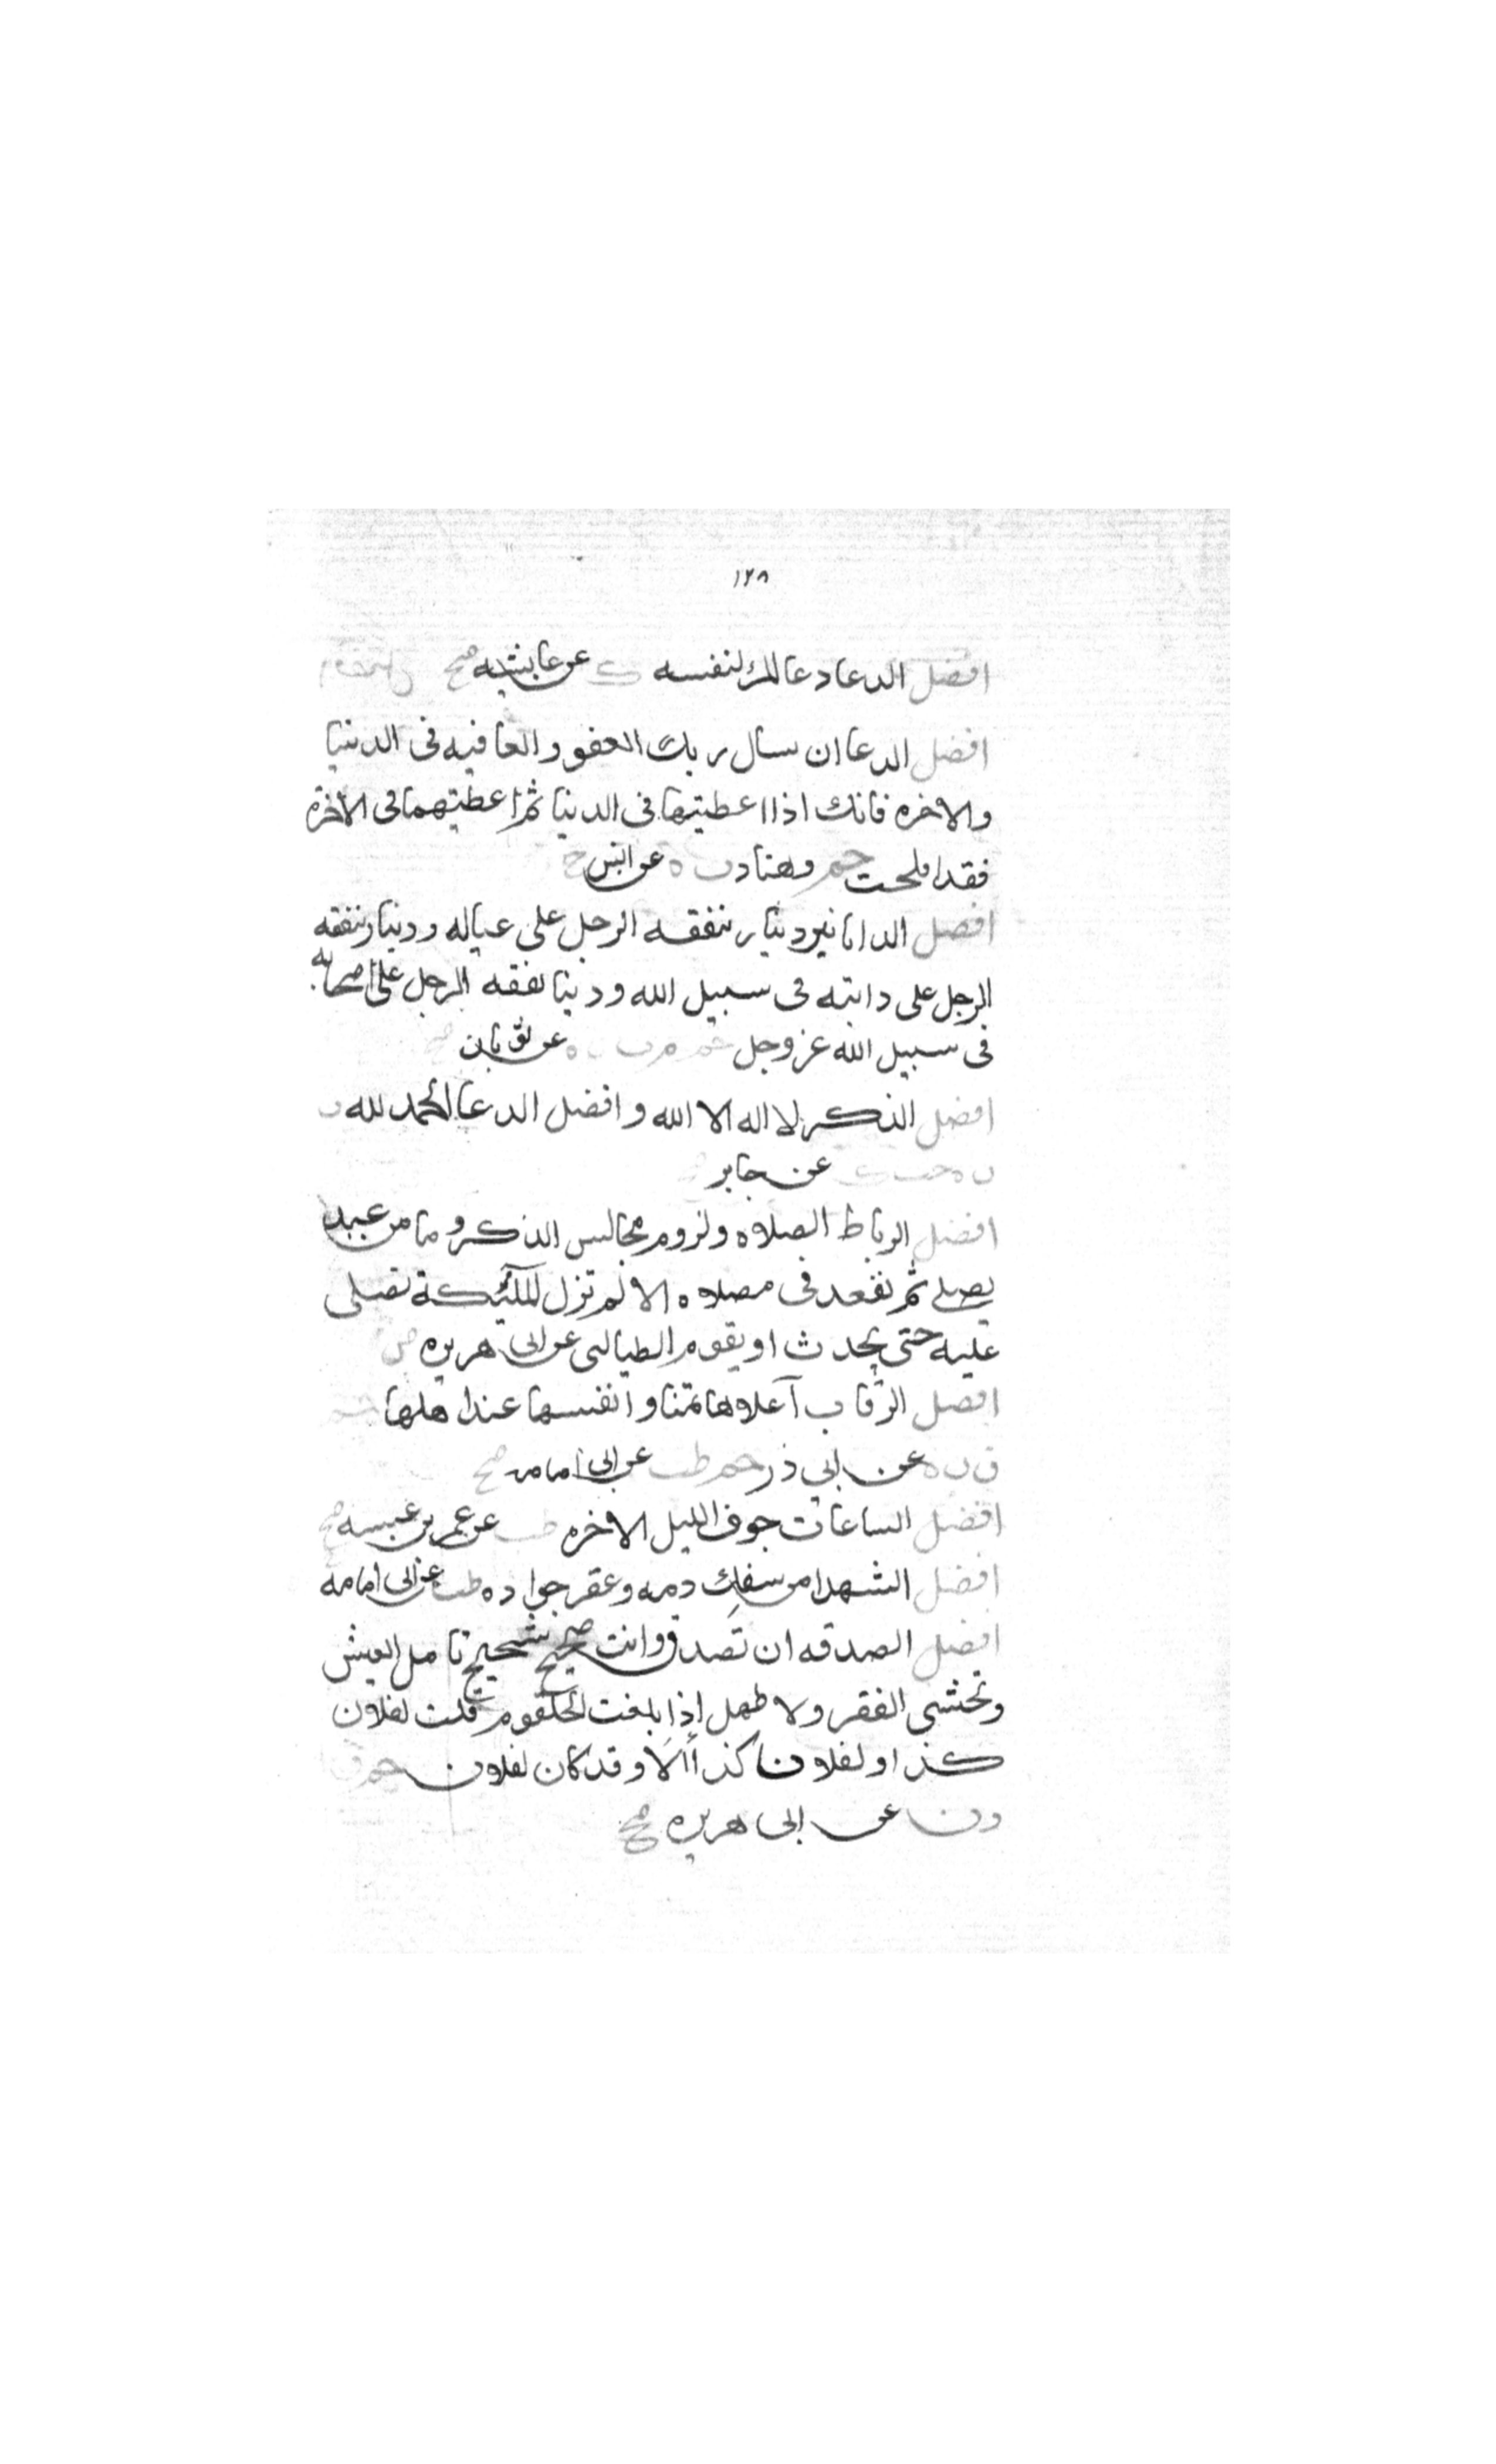 ١٢٨
افضل الدعا دعا المرء لنفسه ك عن عايشه صح
افضل الدعا ان سال ربك العفو والعافيه فى الدنيا
والاخره فانك اذا اعطيتها فى الدنيا ثم اعطيتهما فى الاخرة
فقد افلحت حم وهناد ت ه عن انس ح
افضل الدنانير دينار ينفقه الرجل على عياله ودينار ينفقه
الرجل على دابته فى سبيل الله ودينا ينفقه الرجل على اصحابه
فى سبيل الله عز وجل حم م ت ن ه عن ثوبان صح
افضل الذكر لا اله الا الله وافضل الدعا الحمد لله ت
ن ه حب ك عن جابر
افضل الرباط الصلاه ولزوم مجالس الذكر وما من عبد
يصلى ثم يقعد فى مصلاه الا لم تزل الملئيكة تصلى
عليه حتى يحدث او يقوم الطيالسى عن ابى هريره ض
افضل الرقاب أعلاها ثمنا وانفسها عند اهلها حم
ق ن ه عن ابي ذر حم طب عن ابى امامه صح
افضل الساعات جوف الليل الاخره طب عن عمر بن عبسه صح
افضل الشهدا من سفك دمه وعقر جواده طب عن ابى امامه
افضل الصدقه ان تصدق وانت صحيح شحيح تامل العيش
وتخشى الفقر ولا تمهل اذا بلغت الحلقوم قلت لفلان
كذا ولفلان كذا ألا وقد كان لفلان حم ق
د ن عن ابى هريره صح